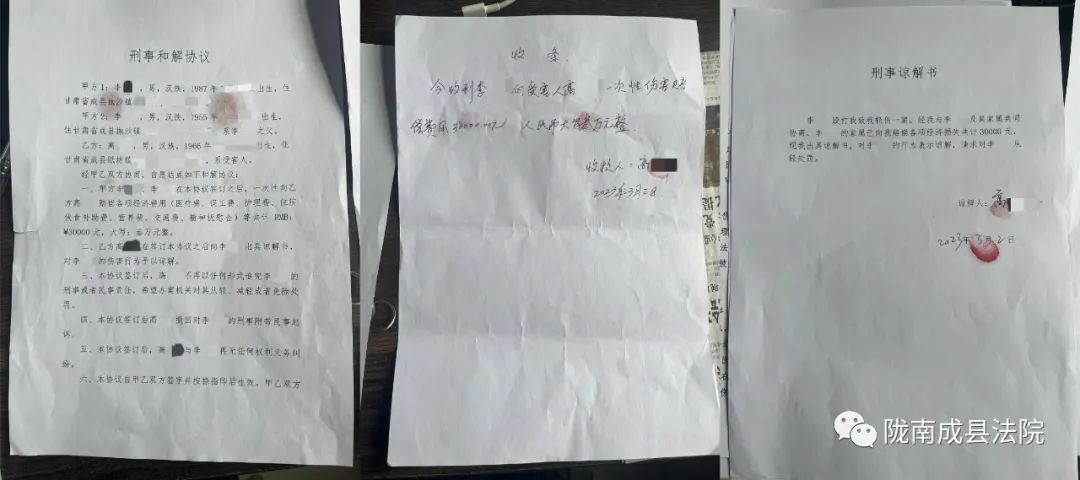 刑事和解协议
甲方1:李 ,男,汉族,1987年 出生,住
甘肃省成县抛沙镇
甲方2: ,男,汉族,1955 出生,
住甘肃省成县抛沙镇 系李 之父。
乙方:高 ,男,汉族,1966 出生,住
甘肃省成县纸坊镇 ,系受害人。
经甲乙双方协商,自愿达成如下和解协议:
一、甲方李 、李 在本协议签订之后,一次性向乙
方高 赔偿各项经济费用(医疗费、误工费、护理费、住院
伙食补助费、营养费、交通费、精神抚慰金)等共计RMB:
¥30000元,大写:叁万元整。
二、乙方高 在签订本协议之后向李 出具谅解书,
对李 的伤害行为予以谅解。
三、本协议签订后,高 不再以任何形式追究李 的
刑事或者民事责任,希望办案机关对其从轻、减轻或者免除处
罚。
四、本协议签订后高 撤回对李 的刑事附带民事起
诉。
五、本协议签订后,高 与李 再无任何权利义务纠
纷。
六、本协议自甲乙双方签字并按捺指印后生效,甲乙双方
收 条
今收到李 向受害人高 一次性伤害赔
偿费用30000.00元 人民币大写叁万元整
收款人:高
2023年3月2日
刑事谅解书
李 殴打我致我轻伤一案,经我与李 及其家属共同
协商,李 的家属已向我赔偿各项经济损失共计30000元,
现我出具谅解书,对李 的行为表示谅解,请求对李 从
轻处罚。
谅解人:高
2023年3月2日
陇南成县法院